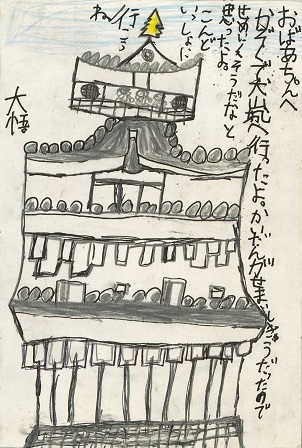 おばあちゃんへ
かぞくで犬山城へ行ったよ。かいだんがせまいしきゅうだったので
せめにくそうだなと
思ったよ。
こんど
いっしょに
行こう
ね
大悟